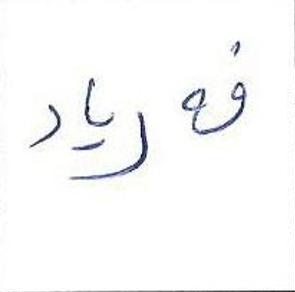 فه ریاد